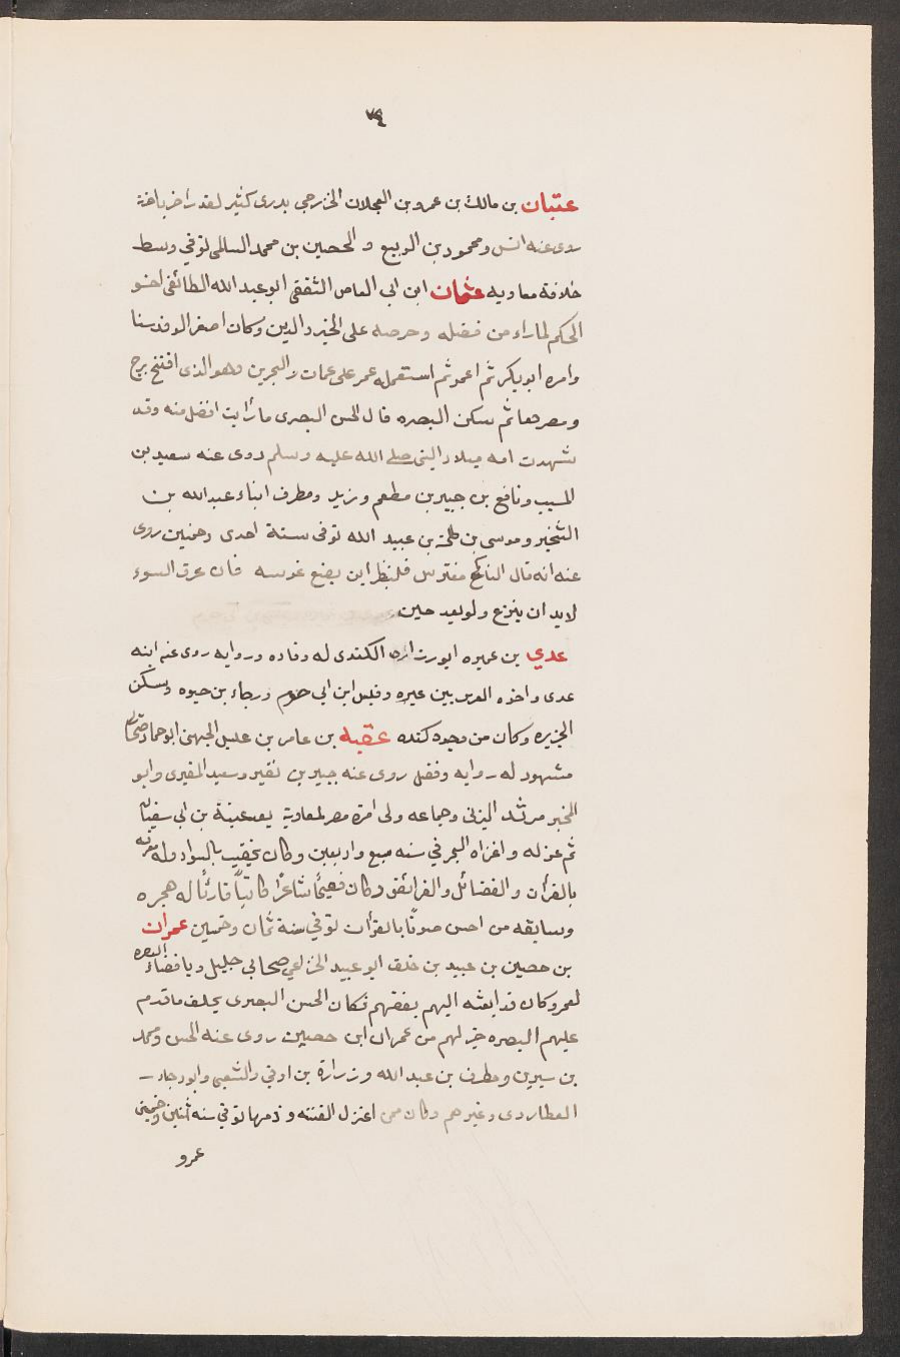 عتبان بن مالك بن عمرو بن العجلان الخزرجي بدرى كبير القدر
روى عنه انس ومحمود بن الربيع و الحصين بن محمد السالمى توفي وسط
خلافة معاويه عثمان ابن ابي العاص الثقفي ابو عبد الله الطائفى اخو
الحكم لما راه من فضله وحرصه على الخير والدين وكان اصغر الوفد سنا
وامره ابو بكر ثم اعمر ثم استعمله عمر على عمان و البحرين وهو الذى افتتح
ومصرها ثم سكن البصره قال الحسن البصرى ما رأيت افضل منه وقد
شهدت امه ميلاد النبى صلى الله عليه وسلم روى عنه سعيد بن
المسيب و نافع بن جبير بن مطعم و زيد ومطرف ابناء عبد الله بن
الشخير و موسى بن طلحة بن عبيد الله توفى سنة احدى وخمسين روى
عنه انه قال الناكح مغترس فلينظر اين يضع غرسه فان عرق السوء
لابد ان ينزع ولو بعد حين
عدي بن عميره ابو زراره الكندى له وفاده وروايه روى عنه ابنه
عدى واخوه العرس بن عميره و قيس ابن ابي حزم و رجاء بن حيوه وسكن
الجزيره وكان من وجوه كنده عقبه بن عامر بن عبس الجهنى ابو حماد صحابى
مشهود له روايه وفضل روى عنه جبير بن نفير وسعيد المقبرى وابو
الخير مرثد اليزنى وجماعه ولى امرة مصر لمعاوية بعد عتبة بن ابى سفيان
ثم عزله و اغزاه البحر في سنه سبع واربعين وكان يخضب بالسواد وله معرفه
بالقرأن و الفضائل والفرائض وكان فصيحًا شاعرًا كاتبًا قارئًا له هجره
وسابقه من احسن صوتًا بالقرأن توفي سنة ثمان وخمسين عمران
بن حصين بن عبيد بن خلف ابو عبيد الخزاعي صحابي جليل ولي قضاء البصره
لعمر وكان قد ابعثه اليهم يفقههم فكان الحسن البصرى يحلف ما قدم
عليهم البصره خير لهم من عمران ابن حصين روى عنه الحسن ومحمد
بن سيرين ومطرف بن عبد الله و زرارة بن اوفي والشعبي وابو رجاء
العطاردى وغيرهم وكان ممن اعتزل الفتنه و ذمها توفي سنه اثنين وخمسين
عمرو